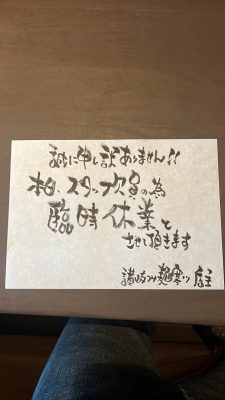 誠に申し訳ありません!!
本日、スタッフ欠員の為
臨時休業と
させて頂きます
店主